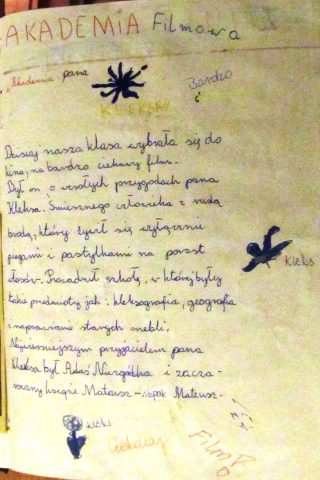 AKADEMIA Filmowa
"Akademia pana
KLEKSA"
Bardzo
Dzisiaj nasza klasa wybrała się do
kina, na bardzo ciekawy film.
Był on o wesołych przygodach pana
Kleksa. Śmiesznego człowieka z rudą
brodą, który żywił się wyłącznie
piegami i pastylkami na porost
włosów. Prowadził szkołę, w której były
takie przedmioty jak: kleksografia, geografia
i naprawianie starych mebli.
Najwierniejszym przyjacielem pana
Kleksa był Adaś Niezgódka i zacza-
rowany książe Mateusz - szpak Mateusz.
KLEKS
KLEKS
Ciekawy
FILM